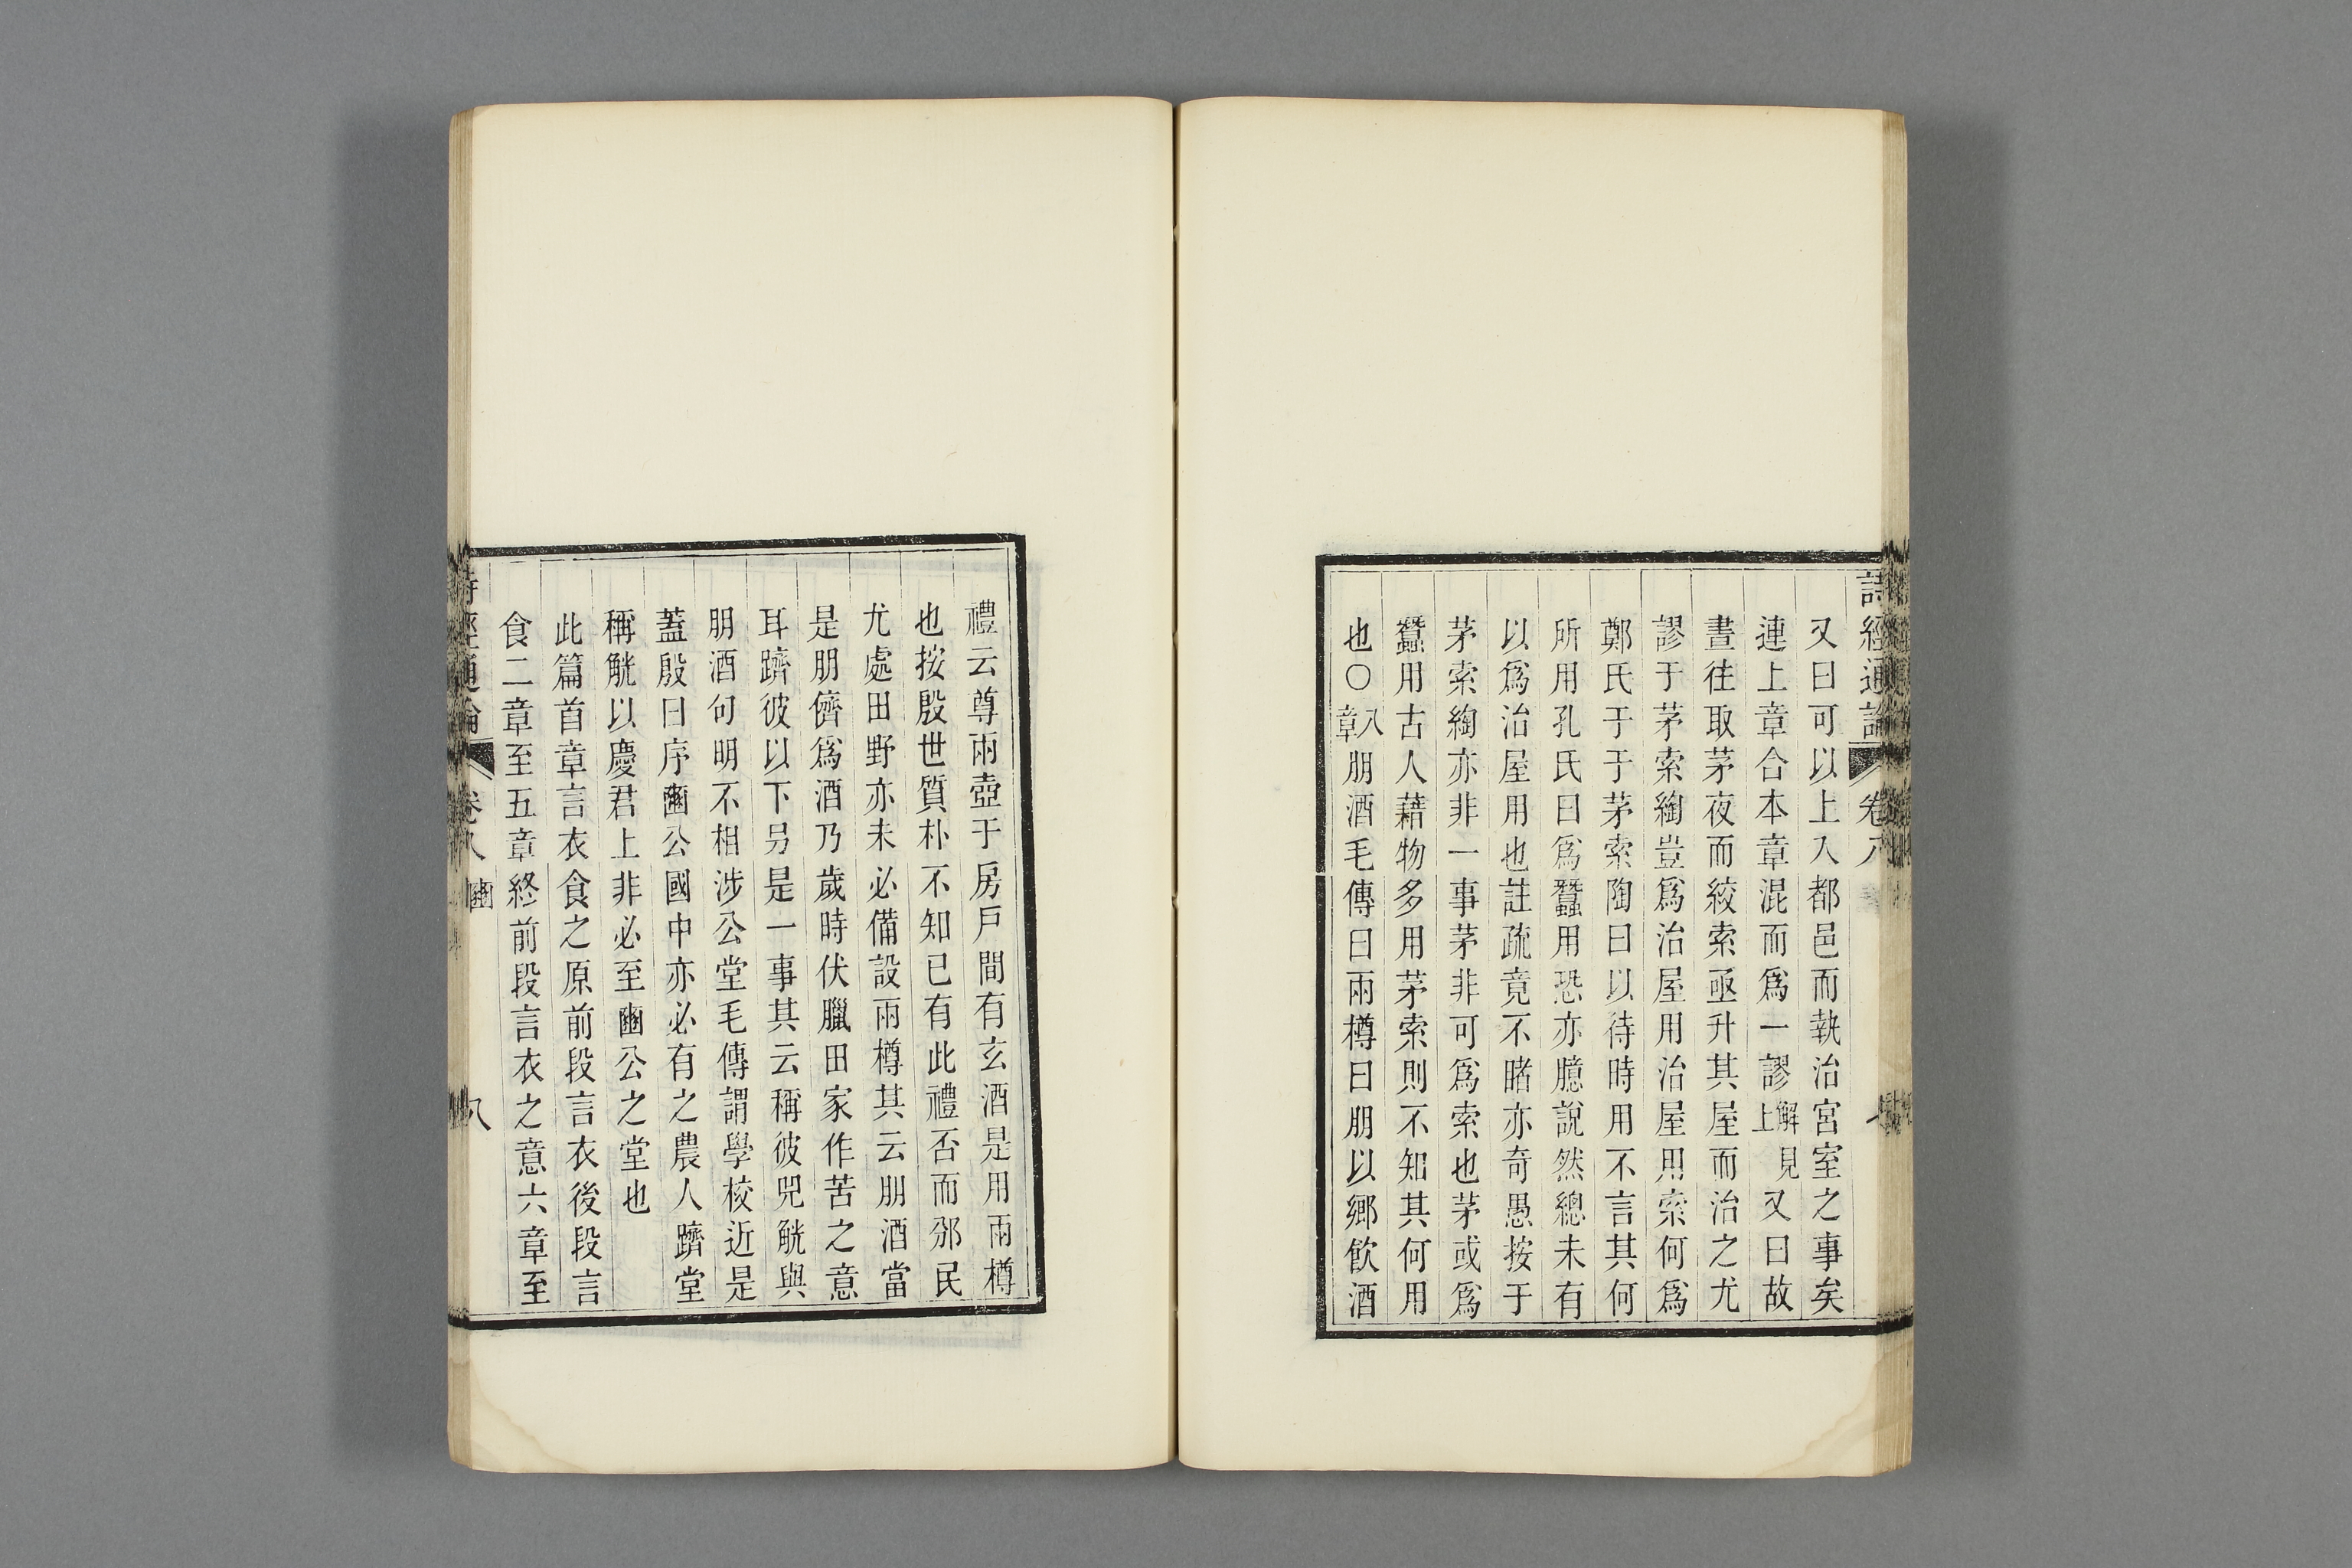 詩經通論 卷八
又曰可以上入都邑而執治宮室之事矣
連上章合本章混而爲一謬解見上又曰故
晝往取茅夜而絞索亟升其屋而治之尤
謬于茅索綯豈爲治屋用治屋用索何爲
鄭氏于于茅索陶曰以待時用不言其何
所用孔氏曰爲蠶用恐亦臆說然總未有
以爲治屋用也註疏竟不睹亦奇愚按于
茅索綯亦非一事茅非可爲索也茅或爲
蠶用古人藉物多用茅索則不知其何用
也○八章朋酒毛傳曰兩樽曰朋以鄉飲酒
禮云尊兩壺于房戶間有玄酒是用兩樽
也按殷世質朴不知已有此禮否而邠民
尤處田野亦未必備設兩樽其云朋酒當
是朋儕爲酒乃歲時伏臘田家作苦之意
耳躋彼以下另是一事其云稱彼兕觥與
朋酒句明不相涉公堂毛傳謂學校近是
蓋殷曰序豳公國中亦必有之農人躋堂
稱觥以慶君上非必至豳公之堂也
此篇首章言衣食之原前段言衣後段言
食二章至五章終前段言衣之意六章至
詩經通論 卷八 豳 八